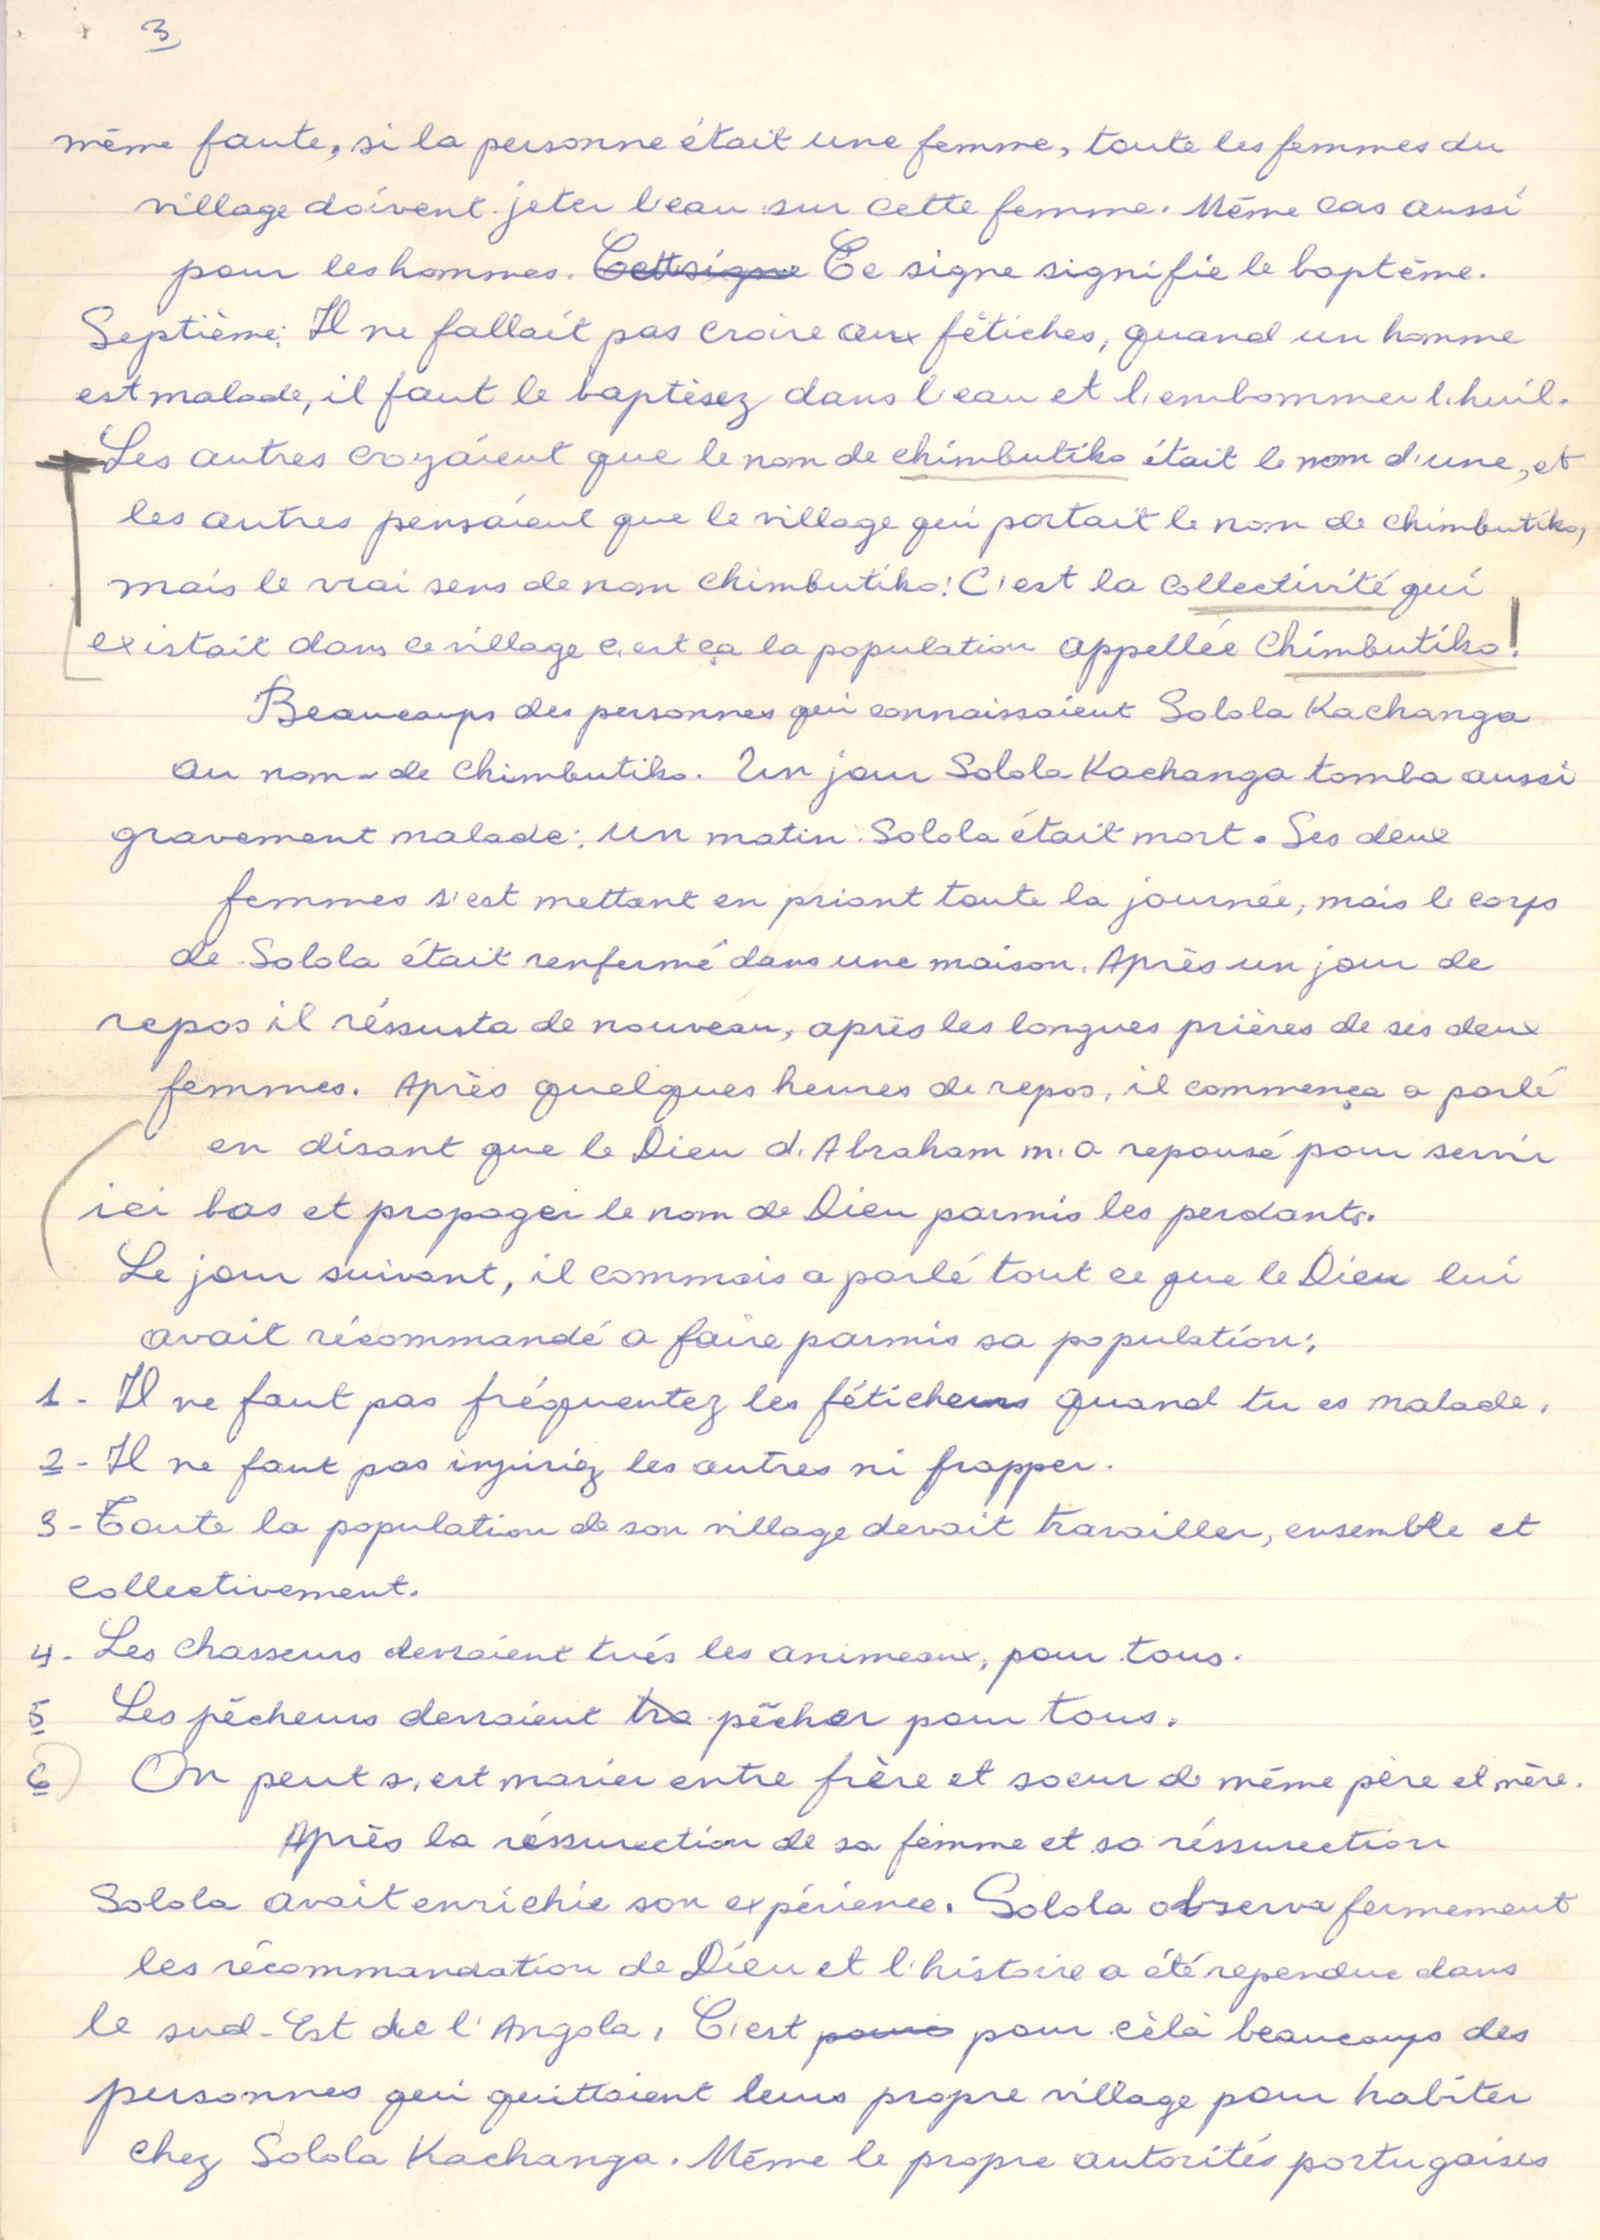 3
même faute, si la personne était une femme, toute les femmes du
village doivent jeter l'eau sur cette femme. Même cas aussi
pour les hommes. Cett signe Ce signe signifie le baptême.
Septième: Il ne fallait pas croire aux fétiches, quand un homme
est malade, il faut le baptèsez dans l'eau et l'embommer l'huil.
Les autres croyaient que le nom de chimbutiko était le nom d'une, et
les autres pensaient que le village qui portait le nom de chimbutiko,
mais le vrai sens de nom chimbutiko! C'est la collectivité qui
existait dans ce village c'est ça la population appellée Chimbutiko!
Beaucoups des personnes qui connaissaient Solola Kachanga
au nom - de chimbutiko. Un jour Solola Kachanga tomba aussi
gravement malade: un matin Solola était mort. Ses deux
femmes s'est mettant en priant toute la journée, mais le corps
de Solola était renfermé dans une maison. Après un jour de
repos il réssusta de nouveau, après les longues prières de ses deux
femmes. Après quelques heures de repos, il commença a parlé
en disant que le Dieu d'Abraham m'a repousé pour servir
ici bas et propager le nom de Dieu parmis les perdants.
Le jour suivant, il commais a parlé tout ce que le Dieu lui
avait récommandé a faire parmis sa population:
1 - Il ne faut pas fréquentez les féticheurs quand tu es malade.
2 - Il ne faut pas injuriez les autres ni frapper.
3 - Toute la population de son village devait travailler, ensemble et
collectivement.
4 - Les chasseurs devraient tués les animeaux, pour tous.
5 Les pêcheurs devraient tra pêcher pour tous.
6 On peut s'est marier entre frère et soeur de même père et mère.
Après la réssurection de sa femme et sa réssurection
Solola avait enrichie son expérience. Solola observa fermement
les récommandation de Dieu et l'histoire a été rependue dans
le sud-Est de l'Angola. C'est pour cèlà beaucoups des
personnes qui quittaient leurs propre village pour habiter
chez Solola Kachanga. Même le propre autorités portugaises